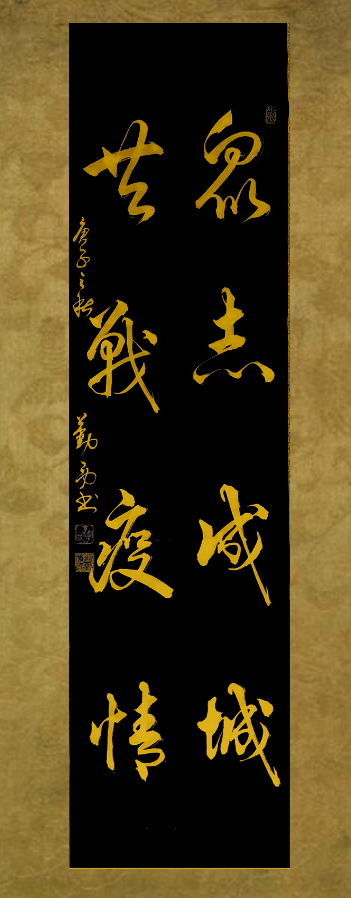 眾志成城
共戰疫情
庚子之秋
勤勇书